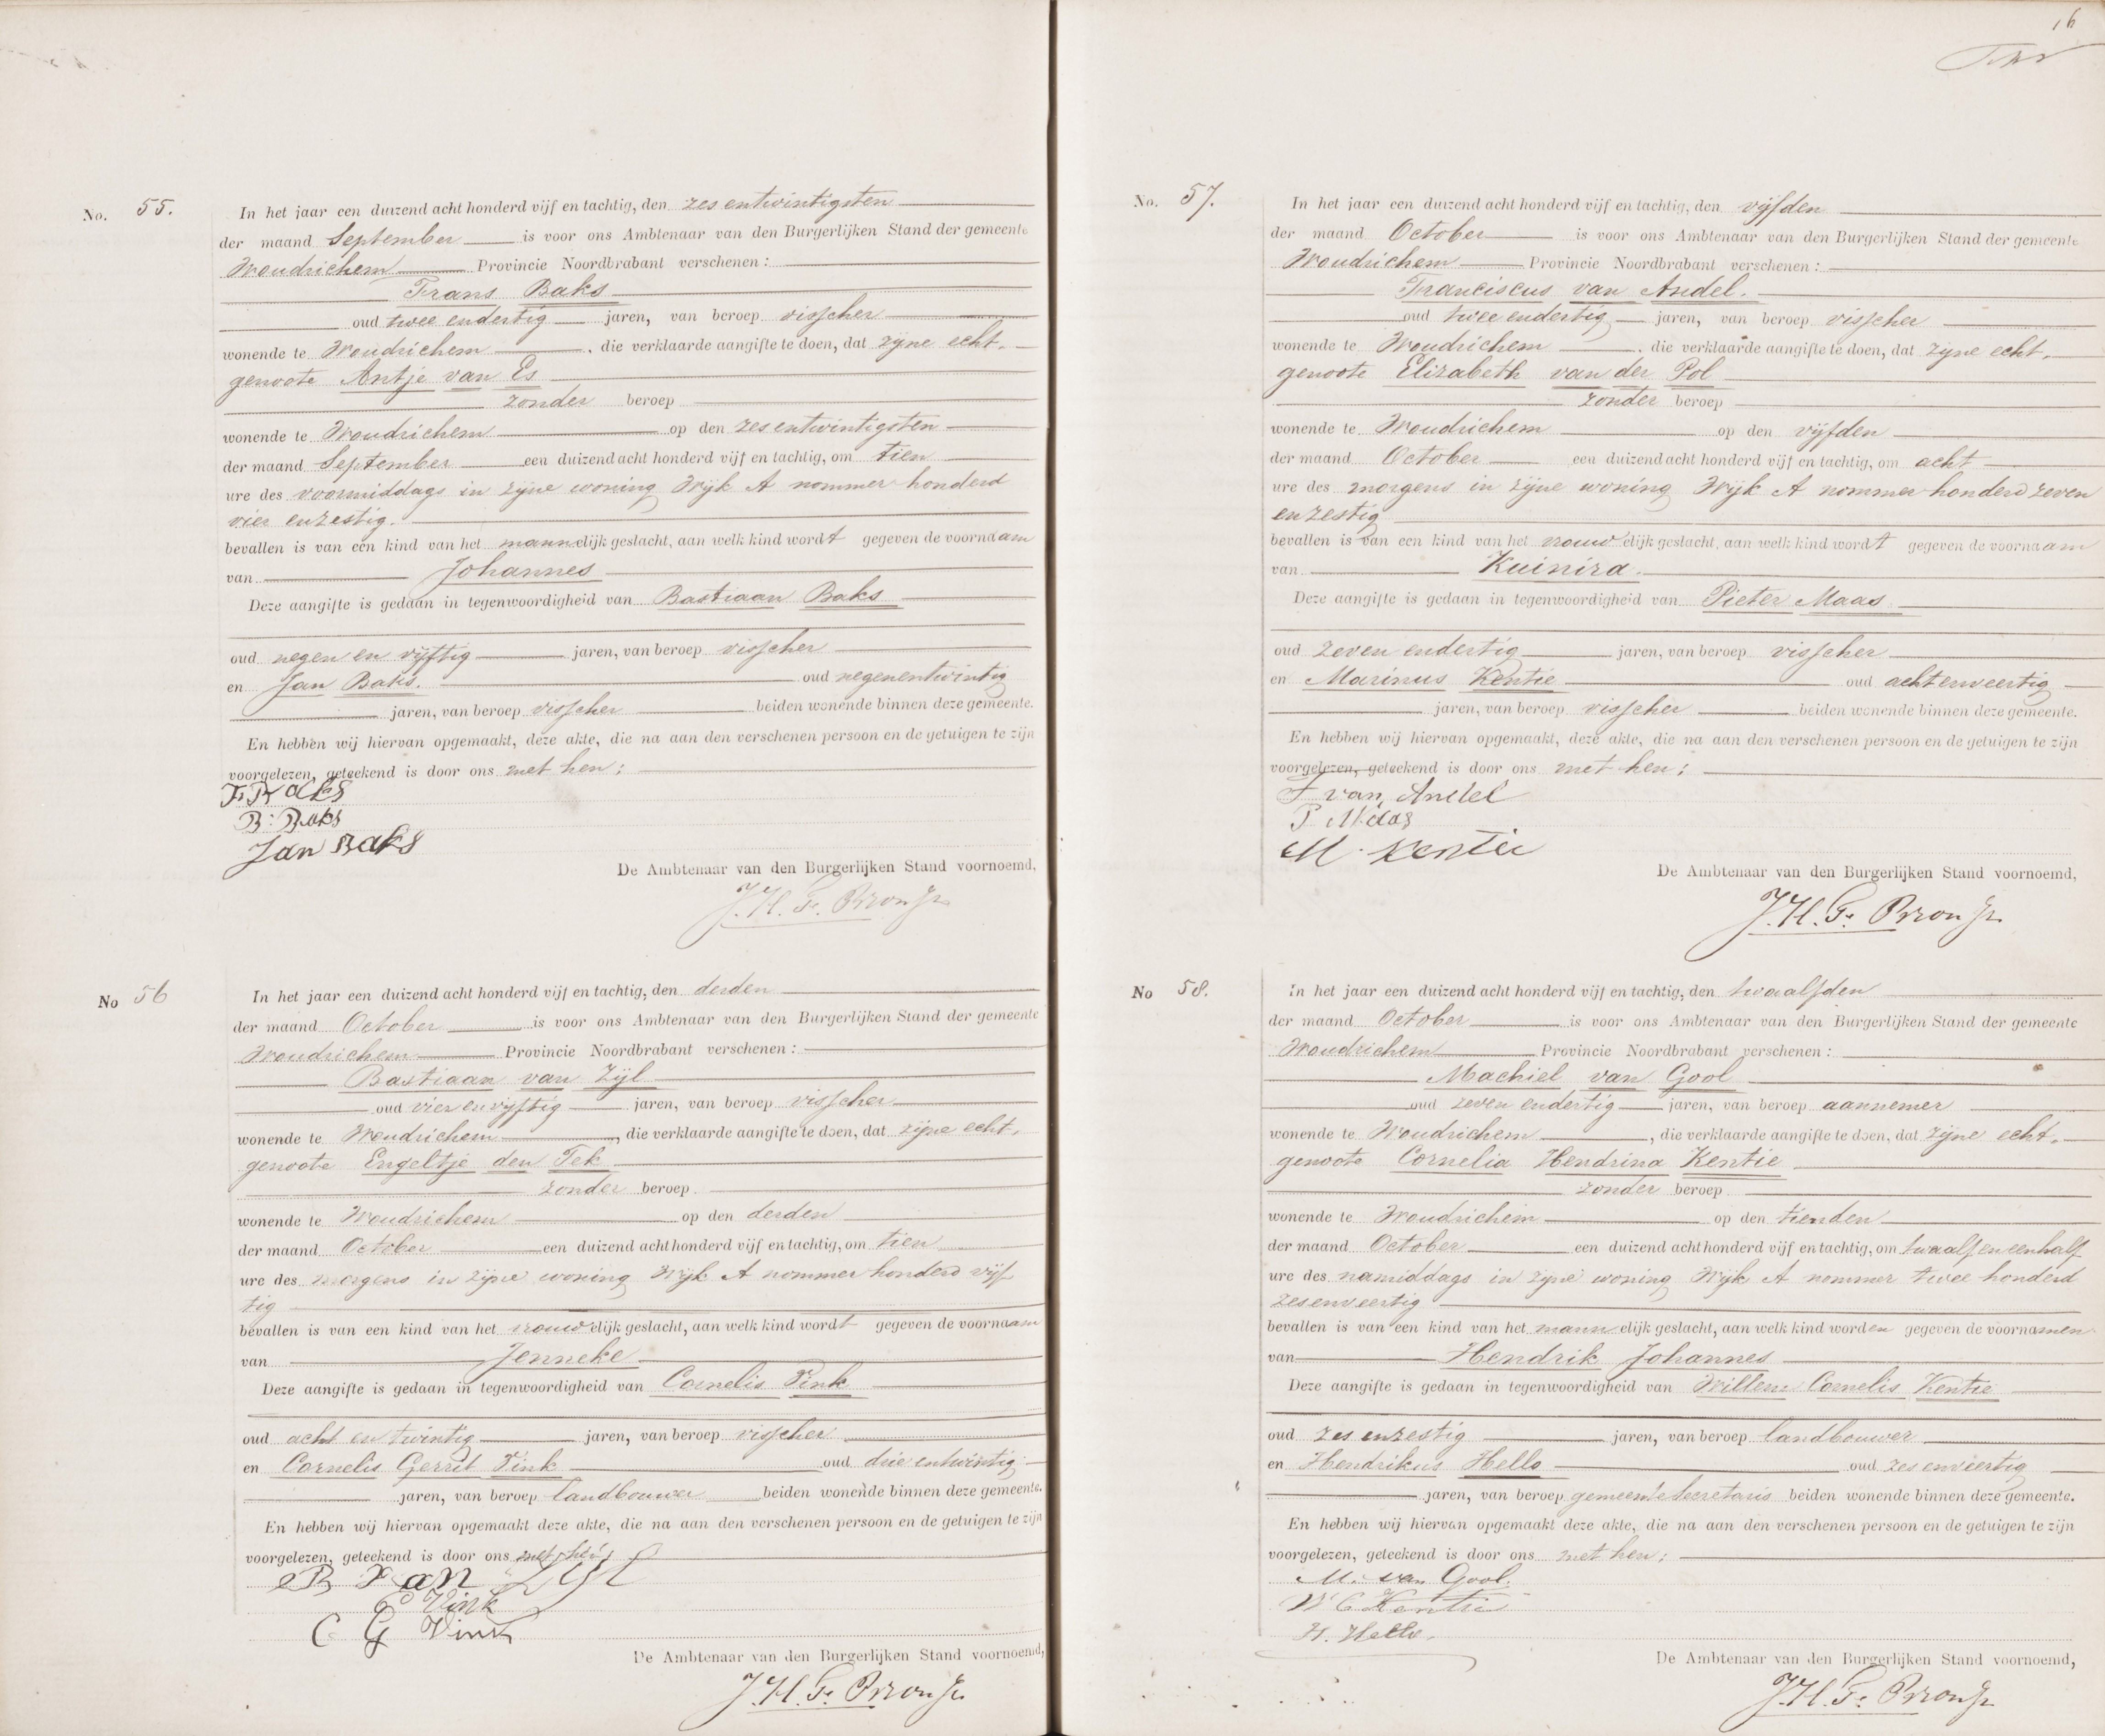 No. 55.
In het jaar een duizend acht honderd vijf en tachtig, den zes entwintigsten
der maand September is voor ons Ambtenaar van den Burgerlijken Stand der gemeente
Woudrichem Provincie Noordbrabant verschenen:
Frans Baks
oud twee endertig jaren, van beroep visscher
wonende te Woudrichem, die verklaarde aangifte te doen, dat zijne echt-
genoote Antje van Es
zonder beroep
wonende te Woudrichem op den zes entwintigsten
der maand September een duizend acht honderd vijf en tachtig, om tien
ure des voormiddags in zijne woning Wijk A nommer honderd
vier enzestig.
bevallen is van een kind van het mannelijk geslacht, aan welk kind wordt gegeven de voornaam
van Johannes
Deze aangifte is gedaan in tegenwoordigheid van Bastiaan Baks
oud negen en vijftig jaren, van beroep visscher
en Jan Baks. oud negenentwintig
jaren, van beroep visscher beiden wonende binnen deze gemeente.
En hebben wij hiervan opgemaakt, deze akte, die na aan den verschenen persoon en de getuigen te zijn
voorgelezen, geteekend is door ons met hen;
F. Baks
B: Baks
Jan Baks
De Ambtenaar van den Burgerlijken Stand voornoemd,
No 56
In het jaar een duizend acht honderd vijf en tachtig, den derden
der maand October is voor ons Ambtenaar van den Burgerlijken Stand der gemeente
Woudrichem Provincie Noordbrabant verschenen:
Bastiaan van Zijl
oud vier en vijftig jaren, van beroep visscher
wonende te Woudrichem, die verklaarde aangifte te doen, dat zijne echt-
genoote Engeltje den Tek
zonder beroep
wonende te Woudrichem op den derden
der maand October een duizend acht honderd vijf en tachtig, om tien
ure des morgens in zijne woning Wijk A nommer honderd vijf
tig
bevallen is van een kind van het vrouwelijk geslacht, aan welk kind wordt gegeven de voornaam
van Jenneke
Deze aangifte is gedaan in tegenwoordigheid van Cornelis Vink
oud acht en twintig jaren, van beroep visscher
en Cornelis Gerrit Vink oud drie entwintig
jaren, van beroep landbouwer beiden wonende binnen deze gemeente.
En hebben wij hiervan opgemaakt deze akte, die na aan den verschenen persoon en de getuigen te zijn
voorgelezen, geteekend is door ons met hen;
B van Zijl
C Vink
C G Vink
De Ambtenaar van den Burgerlijken Stand voornoemd,
16
No. 57.
In het jaar een duizend acht honderd vijf en tachtig, den vijfden
der maand October is voor ons Ambtenaar van den Burgerlijken Stand der gemeente
Woudrichem Provincie Noordbrabant verschenen:
Franciscus van Andel.
oud twee endertig jaren, van beroep visscher
wonende te Woudrichem, die verklaarde aangifte te doen, dat zijne echt-
genoote Elizabeth van der Pol
zonder beroep
wonende te Woudrichem op den vijfden
der maand October een duizend acht honderd vijf en tachtig, om acht
ure des morgens in zijne woning Wijk A nommer honderd zeven
enzestig
bevallen is van een kind van het vrouwelijk geslacht, aan welk kind wordt gegeven de voornaam
van Kuinira.
Deze aangifte is gedaan in tegenwoordigheid van Pieter Maas
oud zeven endertig jaren, van beroep visscher
en Marinus Kentie oud achtenveertig
jaren, van beroep visscher beiden wonende binnen deze gemeente.
En hebben wij hiervan opgemaakt, deze akte, die na aan den verschenen persoon en de getuigen te zijn
voorgelezen, geteekend is door ons met hen;
F van Andel
P Maas
M. Kentie
De Ambtenaar van den Burgerlijken Stand voornoemd,
No 58.
In het jaar een duizend acht honderd vijf en tachtig, den twaalfden
der maand October is voor ons Ambtenaar van den Burgerlijken Stand der gemeente
Woudrichem Provincie Noordbrabant verschenen:
Machiel van Gool
oud zeven endertig jaren, van beroep aannemer
wonende te Woudrichem, die verklaarde aangifte te doen, dat zijne echt-
genoote Cornelia Hendrina Kentie
zonder beroep
wonende te Woudrichem op den tienden
der maand October een duizend acht honderd vijf en tachtig, om twaalf en eenhalf
ure des namiddags in zijne woning Wijk A nommer twee honderd
zesenveertig
bevallen is van een kind van het mannelijk geslacht, aan welk kind worden gegeven de voornamen
van Hendrik Johannes
Deze aangifte is gedaan in tegenwoordigheid van Willem Cornelis Kentie
oud zes enzestig jaren, van beroep landbouwer
en Hendrikus Hello oud zes enveertig
jaren, van beroep gemeente secretaris beiden wonende binnen deze gemeente.
En hebben wij hiervan opgemaakt deze akte, die na aan den verschenen persoon en de getuigen te zijn
voorgelezen, geteekend is door ons met hen;
M. van Gool.
W C Kentie
H. Hello.
De Ambtenaar van den Burgerlijken Stand voornoemd,